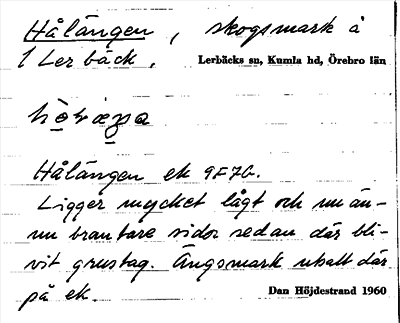 Hålängen, skogsmark å
1 Lerbäck.
Lerbäcks sn, Kumla hd, Örebro län
Hålängen ek 9F7b.
Ligger mycket lågt och nu än-
nu brantare sidor sedan där bli-
vit grustag. Ängsmark utsatt där
på ek.
Dan Höjdestrand 1960